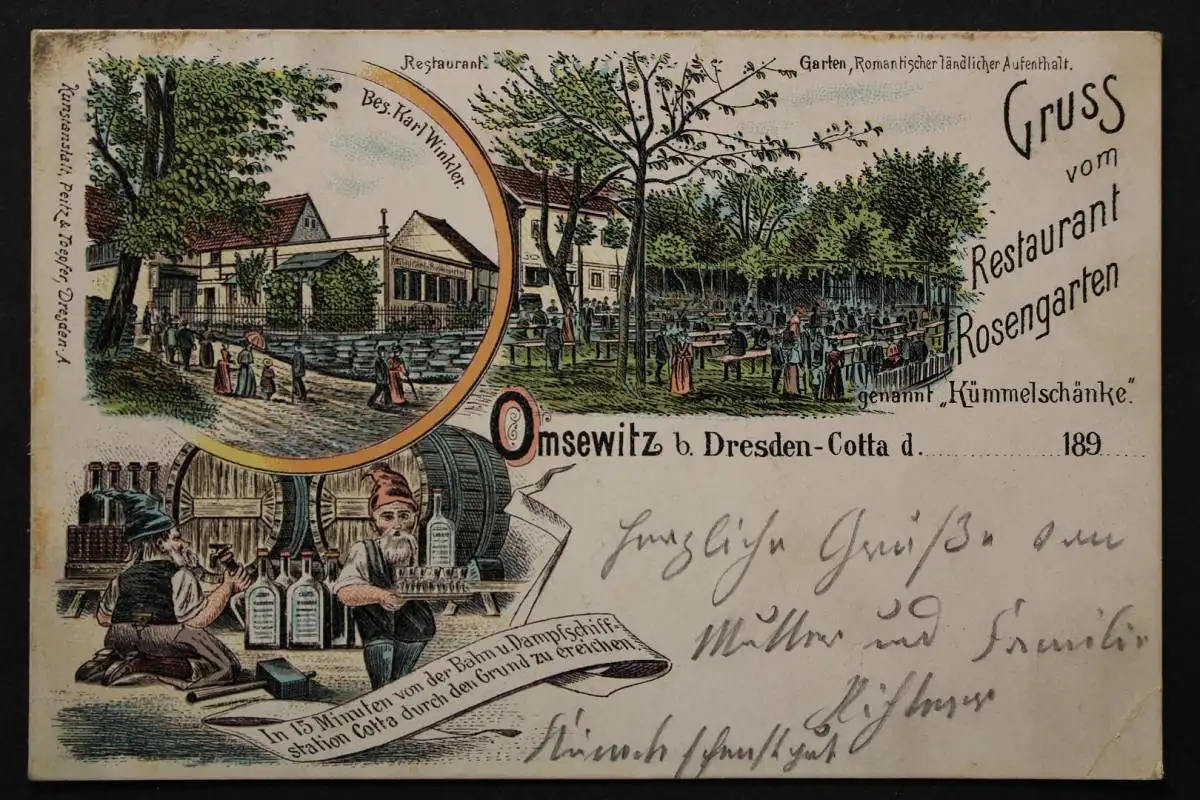 Restaurant.
Garten, Romantischer ländlicher Aufenthalt.
Bes. Karl Winkler.
Kunstanstalt, Peitz & Toepfer, Dresden-A.
Gruss
vom
Restaurant
Rosengarten
genannt „Kümmelschänke“.
Omsewitz b. Dresden-Cotta d. 189
In 15 Minuten von der Bahn u. Dampfschiff-
station Cotta durch den Grund zu ereichen.
Herzliche Grüße von
Mutter und Familie